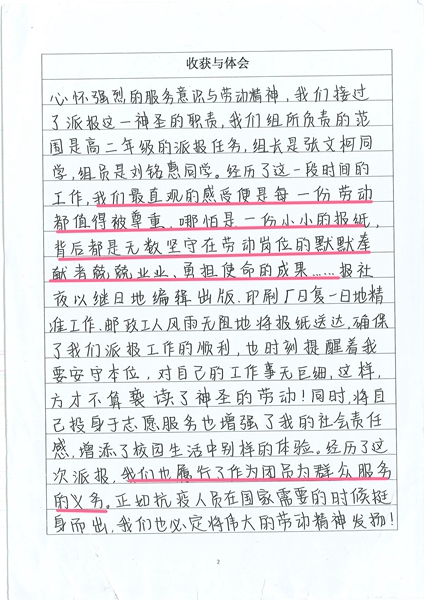 收获与体会
心怀强烈的服务意识与劳动精神，我们接过
了派报这一神圣的职责，我们组所负责的范
围是高二年级的派报任务，组长是张文柯同
学，组员是刘铭惠同学。经历了这一段时间的
工作，我们最直观的感受便是每一份劳动
都值得被尊重，哪怕是一份小小的报纸，
背后都是无数坚守在劳动岗位的默默奉
献者兢兢业业、勇担使命的成果……报社
夜以继日地编辑出版、印刷厂日复一日地精
准工作、邮政工人风雨无阻地将报纸送达，确保
了我们派报工作的顺利，也时刻提醒着我
要安守本位，对自己的工作事无巨细，这样，
方才不算亵读了神圣的劳动！同时，将自
己投身于志愿服务也增强了我的社会责任
感，增添了校园生活中别样的体验。经历了这
次派报，我们也履行了作为团员为群众服务
的义务。正如抗疫人员在国家需要的时候挺
身而出，我们也必定将伟大的劳动精神发扬！
2